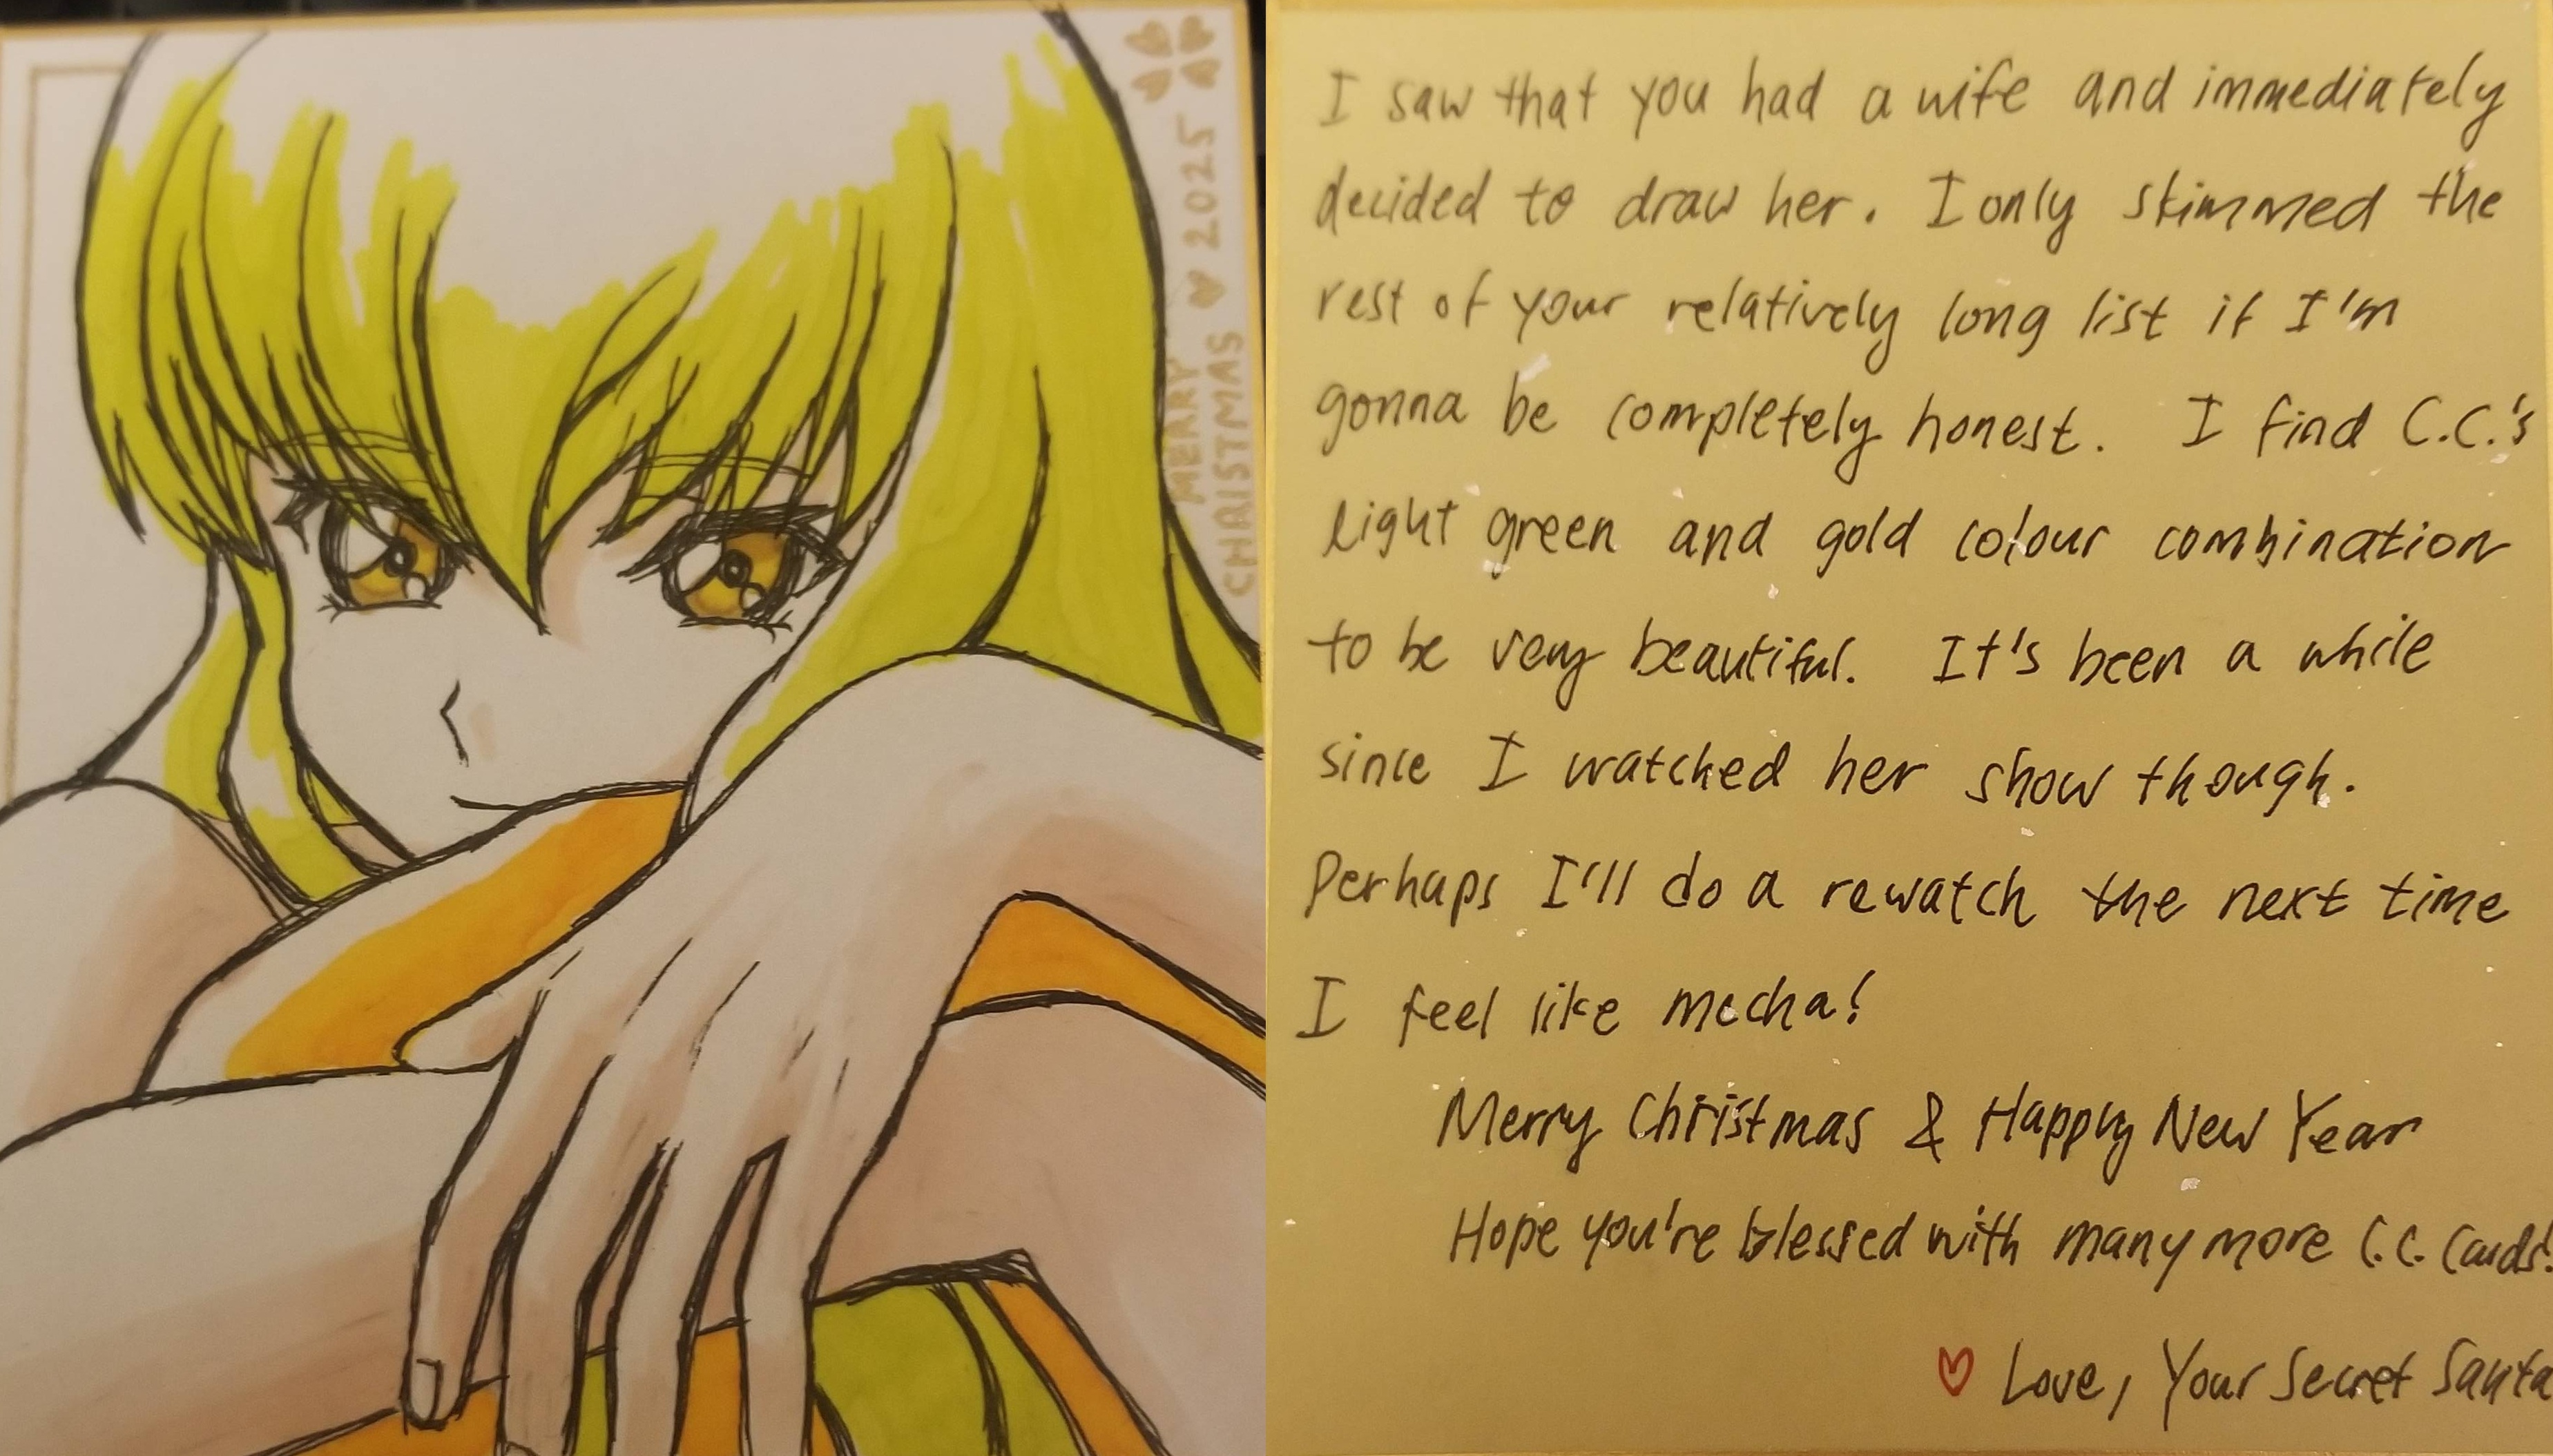 MERRY
CHRISTMAS ♥ 2025
I saw that you had a wife and immediately
decided to draw her. I only skimmed the
rest of your relatively long list if I'm
gonna be completely honest. I find C.C.'s
light green and gold colour combination
to be very beautiful. It's been a while
since I watched her show though.
Perhaps I'll do a rewatch the next time
I feel like mecha!
Merry Christmas & Happy New Year
Hope you're blessed with many more C.C. Cards!
♡ Love, Your Secret Santa